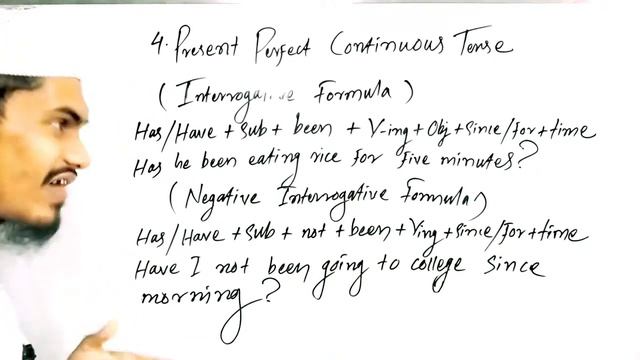 4. Present Perfect Continuous Tense
(Interrogative Formula)
Has/Have + Sub + been + V-ing + Obj + Since/For + time
Has he been eating rice for five minutes?
(Negative Interrogative Formula)
Has/Have + Sub + not + been + Ving + Since/For + time
Have I not been going to college since
morning?